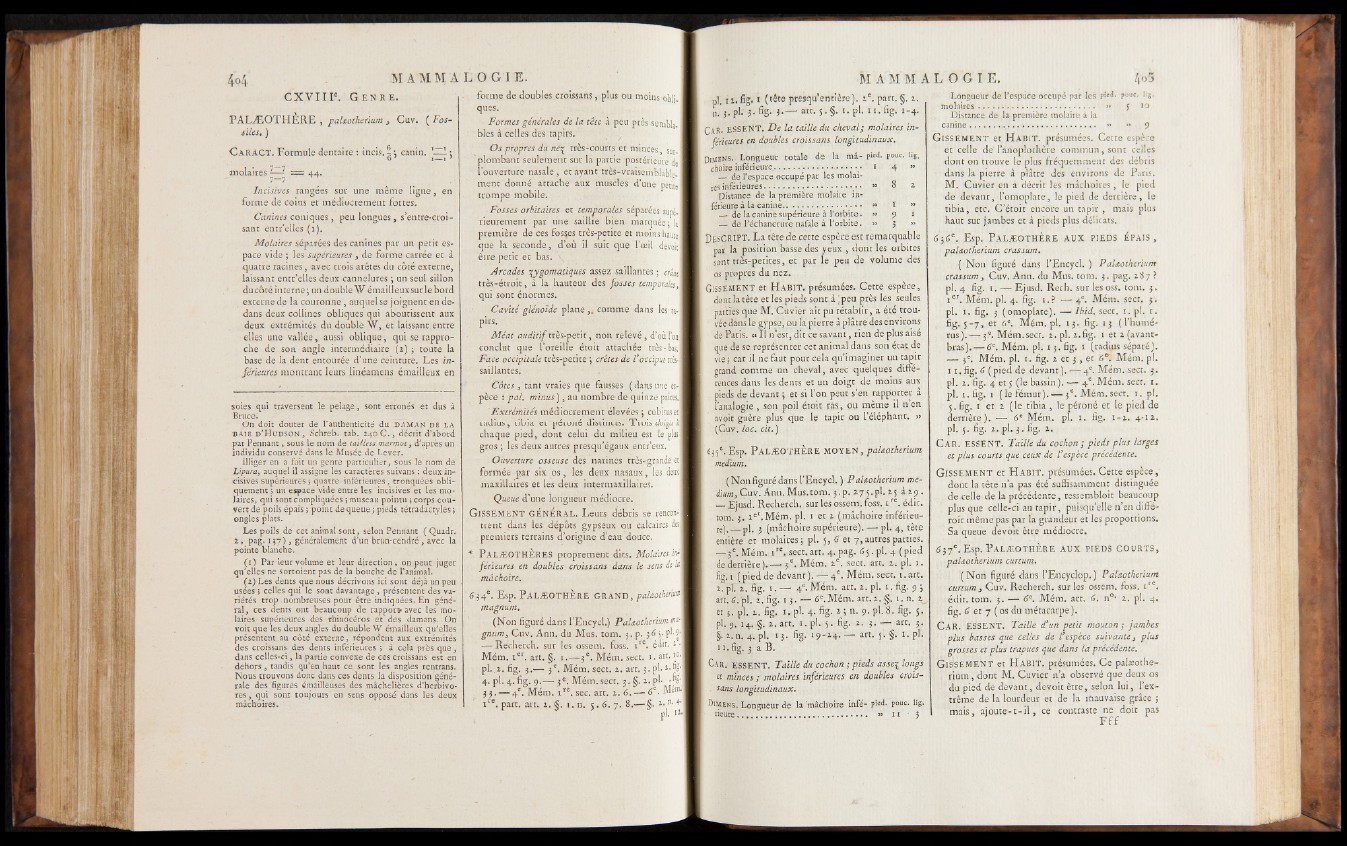 404
MAMMALOGIE.
CXVIIIe. GENRE.
PALÆOTHÈRE, palæotherium, Cuv. (Fos-
siles.)
CARACT. Formule dentaire : incis. 6/6; canin. 1—1/1—1;
molaires 7—7/7—7 = 44.
Incisives rangées sur une même ligne, en
forme de coins et médiocrement fortes.
Canines coniques, peu longues, s'entre-croi-
sant entr'elles (1).
Molaires séparées des canines par un petit es-
pace vide ; les supérieures, de forme carrée et à
quatre racines, avec trois arêtes du côté externe,
laissant entr'elles deux cannelures ; un seul sillon
du côté interne; un double W émailleux sur le bord
externe de la couronne, auquel se joignent en de-
dans deux collines obliques qui aboutissent aux
deux extrémités du double W, et laissant entre
elles une vallée, aussi oblique, qui se rappro-
che de son angle intermédiaire (2) ; toute la
base de la dent entourée d'une ceinture. Les in-
férieures montrant leurs linéamens émailleux en
soies qui traversent le pelage, sont erronés et dus à
Bruce.
On doit douter de l'authenticité du DAMAN DE LA
BAIE D'HUDSON, Schreb. tab. 240 C., décrit d'abord
par Pennant, sous le nom de tailless marmot, d'après un
individu conservé dans le Musée de Lever.
Illiger en a fait un genre particulier, sous le nom de
Lipura, auquel il assigne les caractères suivans : deux in-
cisives supérieures ; quatre inférieures, tronquées obli-
quement ; un espace vide entre les incisives et les mo-
laires, qui sont compliquées ; museau pointu ; corps cou-
vert de poils épais ; point de queue ; pieds tétradactyles ;
ongles plats.
Les poils de cet animal sont, selon Pennant (Quadr.
2, pag. 137), généralement d'un brun-cendré, avec la
pointe blanche.
(1) Par leur volume et leur direction, on peut juger
qu'elles ne sortoient pas de la bouche de l'animal.
(2) Les dents que nous décrivons ici sont déjà un peu
usées ; celles qui le sont davantage, présentent des va-
riétés trop nombreuses pour être indiquées. En géné-
ral, ces dents ont beaucoup de rapports avec les mo-
laires supérieures des rhinocéros et des damans. On
voit que les deux angles du double W émailleux qu'elles
présentent au côté externe, répondent aux extrémités
des croissans des dents inférieures ; à cela près que,
dans celles-ci, la partie convexe de ces croissans est en
dehors, tandis qu'en haut ce sont les angles rentrans.
Nous trouvons donc dans ces dents la disposition géné-
rale des figures émailleuses des mâchelières d'herbivo-
res, qui sont toujours en sens opposé dans les deux
mâchoires.
forme de doubles croissans, plus ou moins obli-
ques.
Formes générales de la tête à peu près sembla-
bles à celles des tapirs.
Os propres du nez très-courts et minces, sur-
plombant seulement sur la partie postérieure de
l'ouverture nasale, et ayant très-vraisemblable-
ment donné attache aux muscles d'une petite
trompe mobile.
Fosses orbitaires et temporales séparées supé-
rieurement par une saillie bien marquée ; la
première de ces fosses très-petite et moins haute
que la seconde, d'où il suit que l'œil devoit
être petit et bas.
Arcades zygomatiques assez saillantes ; crâne
très-étroit, à la hauteur des fosses temporales,
qui sont énormes.
Cavité glénoïde plane, comme dans les ta-
pirs.
Méat auditif très-petit, non relevé, d'où l'on
conclut que l'oreille étoit attachée très-bas.
Face occipitale très-petite ; crêtes de l'occiput très-
saillantes.
Côtes, tant vraies que fausses (dans une es-
pèce : pal. minus), au nombre de quinze paires.
Extrémités médiocrement élevées ; cubitus et
radius, tibia et péroné distincts. Trois doigts à
chaque pied, dont celui du milieu est le plus
gros ; les deux autres presqu'égaux entr'eux.
Ouverture osseuse des narines très-grande et
formée par six os, les deux nasaux, les deux
maxillaires et les deux intermaxillaires.
Queue d'une longueur médiocre.
GISSEMENT GÉNÉRAL. Leurs débris se rencon-
trent dans les dépôts gypseux ou calcaires des
premiers terrains d'origine d'eau douce.
* PALÆOTHÈRES proprement dits. Molaires in-
férieures en doubles croissans dans le sens de la
mâchoire.
634e. Esp. PALÆOTHÈRE GRAND, palæotherium
magnum.
(Non figuré dans l'Encycl.) Palæotherium ma-
gnum, Cuv. Ann. du Mus. tom. 3. p. 365. pl. 9.
— Recherch. sur les ossem. foss. 1re. édit.
Mém. 1er. art. §. 1.—3e. Mém. sect. 1. art. 10.
pl. 2. fig. 3.— 3e. Mém. sect. 2. art. 3. pl. 2. fig.
4. pl. 4. fig. 9.— 3e. Mém. sect. 3. §. 2. pl. fig.
33. — 4e. Mém. 1re. sec. art. 2. 6. — 6e. Mém.
1re. part. art. 2. §. 1. n. 5. 6. 7. 8.— §. 2. n. 4.
pl. 12.
MAMMALOGIE.
405
pl. 12. fig. 1 (tête presqu'entière). 2e. part. §. 2.
n. 3. pl. 3. fig. 3.— art. 5. §. 1. pl. 11. fig. 1-4.
CAR. ESSENT. De la taille du cheval ; molaires in-
férieures en doubles croissans longitudinaux.
DIMENS. Longueur totale de la mâ- pied. pouc. lig.
choire inférieure . . . 1 4 »
— de l'espace occupé par les molai-
res inférieures . . . » 8 2
Distance de la première molaire in-
férieure à la canine . . . » 1 »
— de la canine supérieure à l'orbite. » 9 1
— de l'échancrure nasale à l'orbite. » 3 »
DESCRIPT. La tête de cette espèce est remarquable
par la position basse des yeux, dont les orbites
sont très-petites, et par le peu de volume des
os propres du nez.
GISSEMENT et HABIT. présumées. Cette espèce,
dont la tête et les pieds sont à peu près les seules
parties que M. Cuvier ait pu rétablir, a été trou-
vée dans le gypse, ou la pierre à plâtre des environs
de Paris. « Il n'est, dit ce savant, rien de plus aisé
que de se représenter cet animal dans son état de
vie ; car il ne faut pour cela qu'imaginer un tapir
grand comme un cheval, avec quelques diffé-
rences dans les dents et un doigt de moins aux
pieds de devant ; et si l'on peut s'en rapporter à
l'analogie, son poil étoit ras, ou même il n'en
avoit guère plus que le tapir ou l'éléphant. »
(Cuv. loc. cit.)
635e. Esp. PALÆOTHÈRE MOYEN, palæotherium
medium.
(Non figuré dans l'Encycl.) Palæotherium me-
dium, Cuv. Ann. Mus. tom. 3. p. 275. pl. 25 à 29.
— Ejusd. Recherch. sur les ossem. foss. 1re. édit.
tom. 3. 1er. Mém. pl. 1 et 2 (mâchoire inférieu-
re).— pl. 3 (mâchoire supérieure).— pl. 4, tête
entière et molaires ; pl. 5, 6 et 7, autres parties.
— 3e. Mém. 1re. sect. art. 4. pag. 65. pl. 4 (pied
de derrière).— 3e. Mém. 2e. sect. art. 2. pl. 1.
fig. 1 (pied de devant). — 4e. Mém. sect. 1. art.
2. pl. 2. fig. 1. — 4e. Mém. art. 2. pl. 1. fig. 9 ;
art. 6. pl. 2. fig. 13. — 6e. Mém. art. 2. §. 1. n. 2.
et 3. pl. 2. fig. 1. pl. 4. fig. 2 ; n. 9. pl. 8. fig. 5.
pl. 9. 14. §. 2. art. 1. pl. 5. fig. 2. 3. — art. 3.
§. 2. n. 4. pl. 13. fig. 19-24. — art. 5. §. 1. pl.
11. fig. 3 a B.
CAR. ESSENT. Taille du cochon ; pieds assez longs
et minces ; molaires inférieures en doubles crois-
sans longitudinaux.
DIMENS. Longueur de la mâchoire infé- pied. pouc. lig.
rieure . . . » 11 3
Longueur de l'espace occupé par les pied. pouc. lig.
molaires . . . » 5 10
Distance de la première molaire à la
canine . . . » » 9
GISSEMENT et HABIT. présumées. Cette espèce
et celle de l'anoplothère commun, sont celles
dont on trouve le plus fréquemment des débris
dans la pierre à plâtre des environs de Paris.
M. Cuvier en a décrit les mâchoires, le pied
de devant, l'omoplate, le pied de derrière, le
tibia, etc. C'étoit encore un tapir, mais plus
haut sur jambes et à pieds plus délicats.
636e. Esp. PALÆOTHÈRE AUX PIEDS ÉPAIS,
palæotherium crassum.
(Non figuré dans l'Encycl.) Palæotherium
crassum, Cuv. Ann. du Mus. tom. 3. pag. 287 ?
pl. 4 fig. 1. — Ejusd. Rech. sur les oss. tom. 3.
1er. Mém. pl. 4. fig. 1.? — 4e. Mém. sect. 3.
pl. 1. fig. 3 (omoplate). — Ibid. sect. 1. pl. 1.
fig. 5-7, et 6e. Mém. pl. 13. fig. 13 (l'humé-
rus).— 3e. Mém. sect. 2. pl. 2. fig. 1 et 2 (avant-
bras).— 6e. Mém. pl. 13. fig. 1 (radius séparé).
— 3e. Mém. pl. 1. fig. 2 et 3, et 6e. Mém. pl.
11. fig. 6 (pied de devant).— 4e. Mém. sect. 3.
pl. 2. fig. 4 et 5 (le bassin). — 4e. Mém. sect. 1.
pl. 1. fig. 1 (le fémur).— 3e. Mém. sect. 1. pl.
5. fig. 1 et 2 (le tibia, le péroné et le pied de
derrière). — 6e Mém. pl. 2. fig. 1-2. 4-12.
pl. 5. fig. 2. pl. 3. fig. 2.
CAR. ESSENT. Taille du cochon ; pieds plus larges
et plus courts que ceux de l'espèce précédente.
GISSEMENT et HABIT. présumées. Cette espèce,
dont la tête n'a pas été suffisamment distinguée
de celle de la précédente, ressembloit beaucoup
plus que celle-ci au tapir, puisqu'elle n'en diffé-
roit même pas par la grandeur et les proportions.
Sa queue devoit être médiocre.
637e. Esp. PALÆOTHÈRE AUX PIEDS COURTS,
palæotherium curtum.
(Non figuré dans l'Encyclop.) Palæotherium
curtum, Cuv. Recherch. sur les ossem. foss. 1re.
édit. tom. 3. — 6e. Mém. art. 6. no. 2. pl. 4.
fig. 6 et 7 (os du métacarpe).
CAR. ESSENT. Taille d'un petit mouton ; jambes
plus basses que celles de l'espèce suivante, plus
grosses et plus trapues que dans la précédente.
GISSEMENT et HABIT. présumées. Ce palæothe-
rium, dont M. Cuvier n'a observé que deux os
du pied de devant, devoit être, selon lui, l'ex-
trême de la lourdeur et de la mauvaise grâce ;
mais, ajoute-t-il, ce contraste ne doit pas
Fff